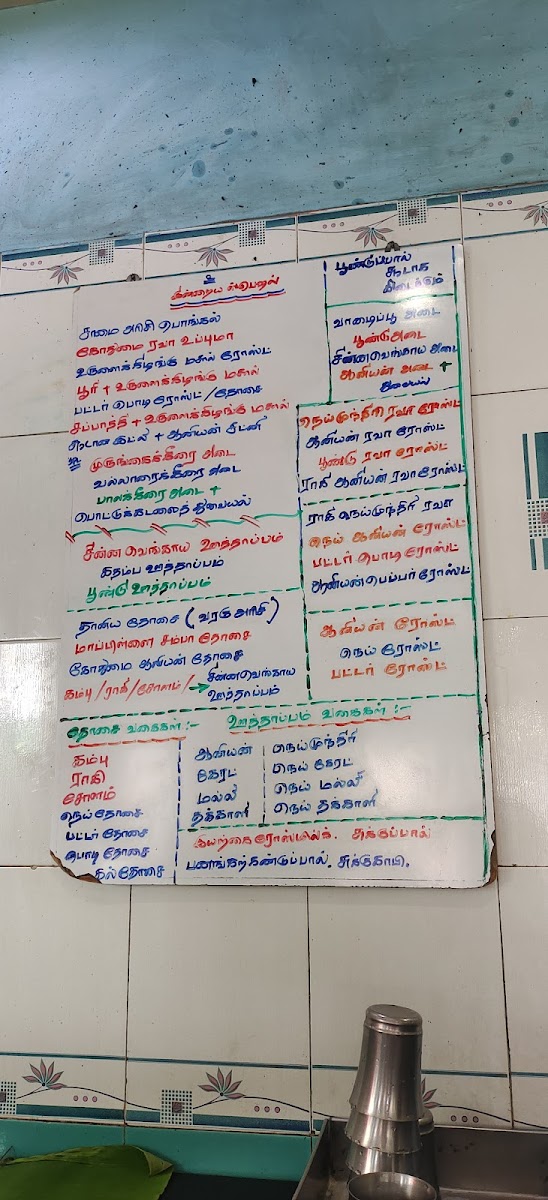 உ
இன்றைய ஸ்பெஷல்
சாமை அரிசி பொங்கல்
கோதுமை ரவா உப்புமா
உருளைக்கிழங்கு மசால் ரோஸ்ட்
பூரி + உருளைக்கிழங்கு மசால்
பட்டர் பொடி ரோஸ்ட் / தோசை
சப்பாத்தி + உருளைக்கிழங்கு மசால்
இட்லி + ஆனியன் சட்னி
முருங்கைக்கீரை அடை
வல்லாரைக்கீரை அடை
பாலக்கீரை அடை +
பொட்டுக்கடலைத் துவையல்
சின்ன வெங்காய ஊத்தாப்பம்
கதம்ப ஊத்தாப்பம்
பூண்டு ஊத்தாப்பம்
தானிய தோசை (வரகு அரிசி)
மாப்பிள்ளை சம்பா தோசை
கோதுமை ஆனியன் தோசை
கம்பு / ராகி / சோளம் / → சின்னவெங்காய
ஊத்தாப்பம்
பூண்டுப்பால்
சூடாக
கிடைக்கும்
வாழைப்பூ அடை
பூண்டு அடை
சின்னவெங்காய அடை
ஆனியன் அடை +
துவையல்
நெய்முந்திரி ரவா ரோஸ்ட்
ஆனியன் ரவா ரோஸ்ட்
பூண்டு ரவா ரோஸ்ட்
ராகி ஆனியன் ரவா ரோஸ்ட்
ராகி நெய்முந்திரி ரவா
நெய் ஆனியன் ரோஸ்ட்
பட்டர் பொடி ரோஸ்ட்
ஆனியன் பெப்பர் ரோஸ்ட்
ஆனியன் ரோஸ்ட்
நெய் ரோஸ்ட்
பட்டர் ரோஸ்ட்
தோசை வகைகள் :-
கம்பு
ராகி
சோளம்
நெய் தோசை
பட்டர் தோசை
பொடி தோசை
கல்தோசை
ஊத்தாப்பம் வகைகள் :-
ஆனியன்
கேரட்
மல்லி
தக்காளி
நெய்முந்திரி
நெய் கேரட்
நெய் மல்லி
நெய் தக்காளி
இயற்கை ரோஸ்மில்க். சுக்குப்பால்
பனங்கற்கண்டுப்பால். சுக்குகாபி.